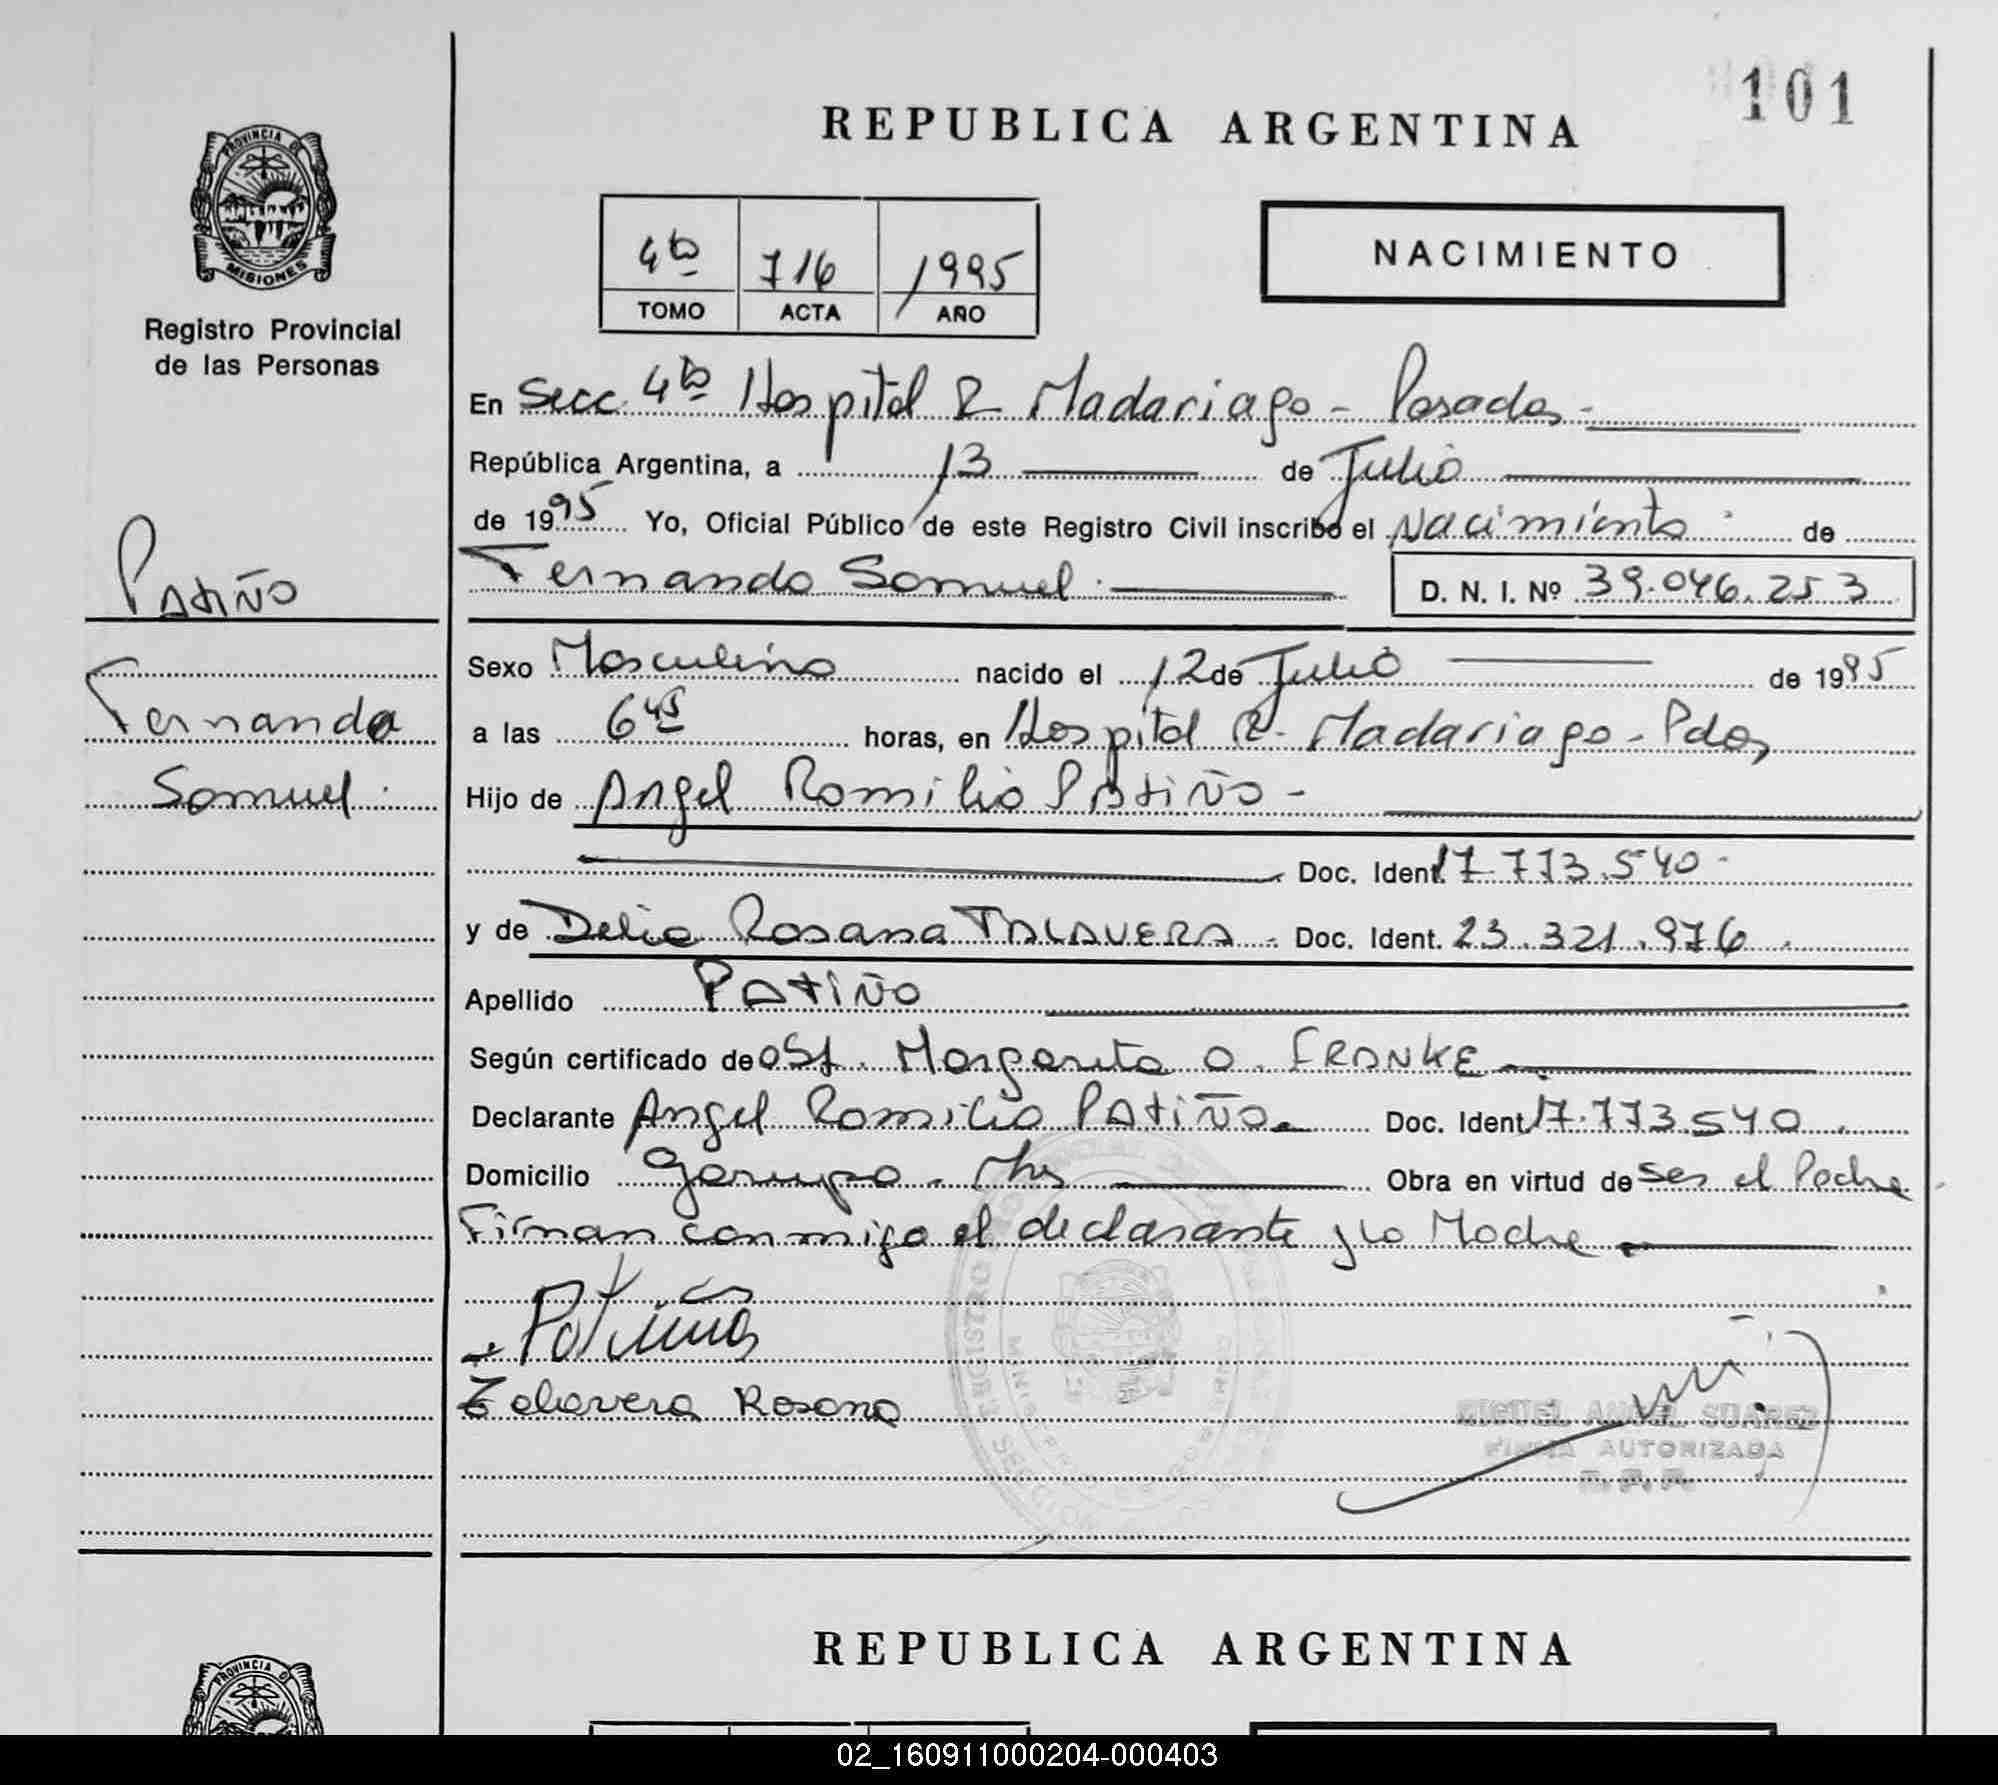 101
REPUBLICA ARGENTINA
PROVINCIA DE
MISIONES
Registro Provincial
de las Personas
4to 716 1995
TOMO ACTA AÑO
NACIMIENTO
En Secc. 4to Hospital R Madariaga - Posadas -
República Argentina, a 13 de Julio
de 1995 Yo, Oficial Público de este Registro Civil inscribo el Nacimiento de
Fernando Samuel
D. N. I. Nº 39.046.253
PATIÑO
Fernando
Samuel
Sexo Masculino nacido el 12 de Julio de 1995
a las 6 45 horas, en Hospital R. Madariaga - Pdas
Hijo de Angel Romilio PATIÑO -
Doc. Ident. 17.773.540
y de Delia Rosana TALAVERA - Doc. Ident. 23.321.976
Apellido PATIÑO
Según certificado de Obst. Margarita O. FRANKE
Declarante Angel Romilio PATIÑO Doc. Ident. 17.773.540
Domicilio Garupa - Mnes Obra en virtud de ser el Padre
Firman conmigo el declarante y la Madre
Patiño
Talavera Rosana
MIGUEL ANGEL SUAREZ
FIRMA AUTORIZADA
REPUBLICA ARGENTINA
PROVINCIA DE
02_160911000204-000403